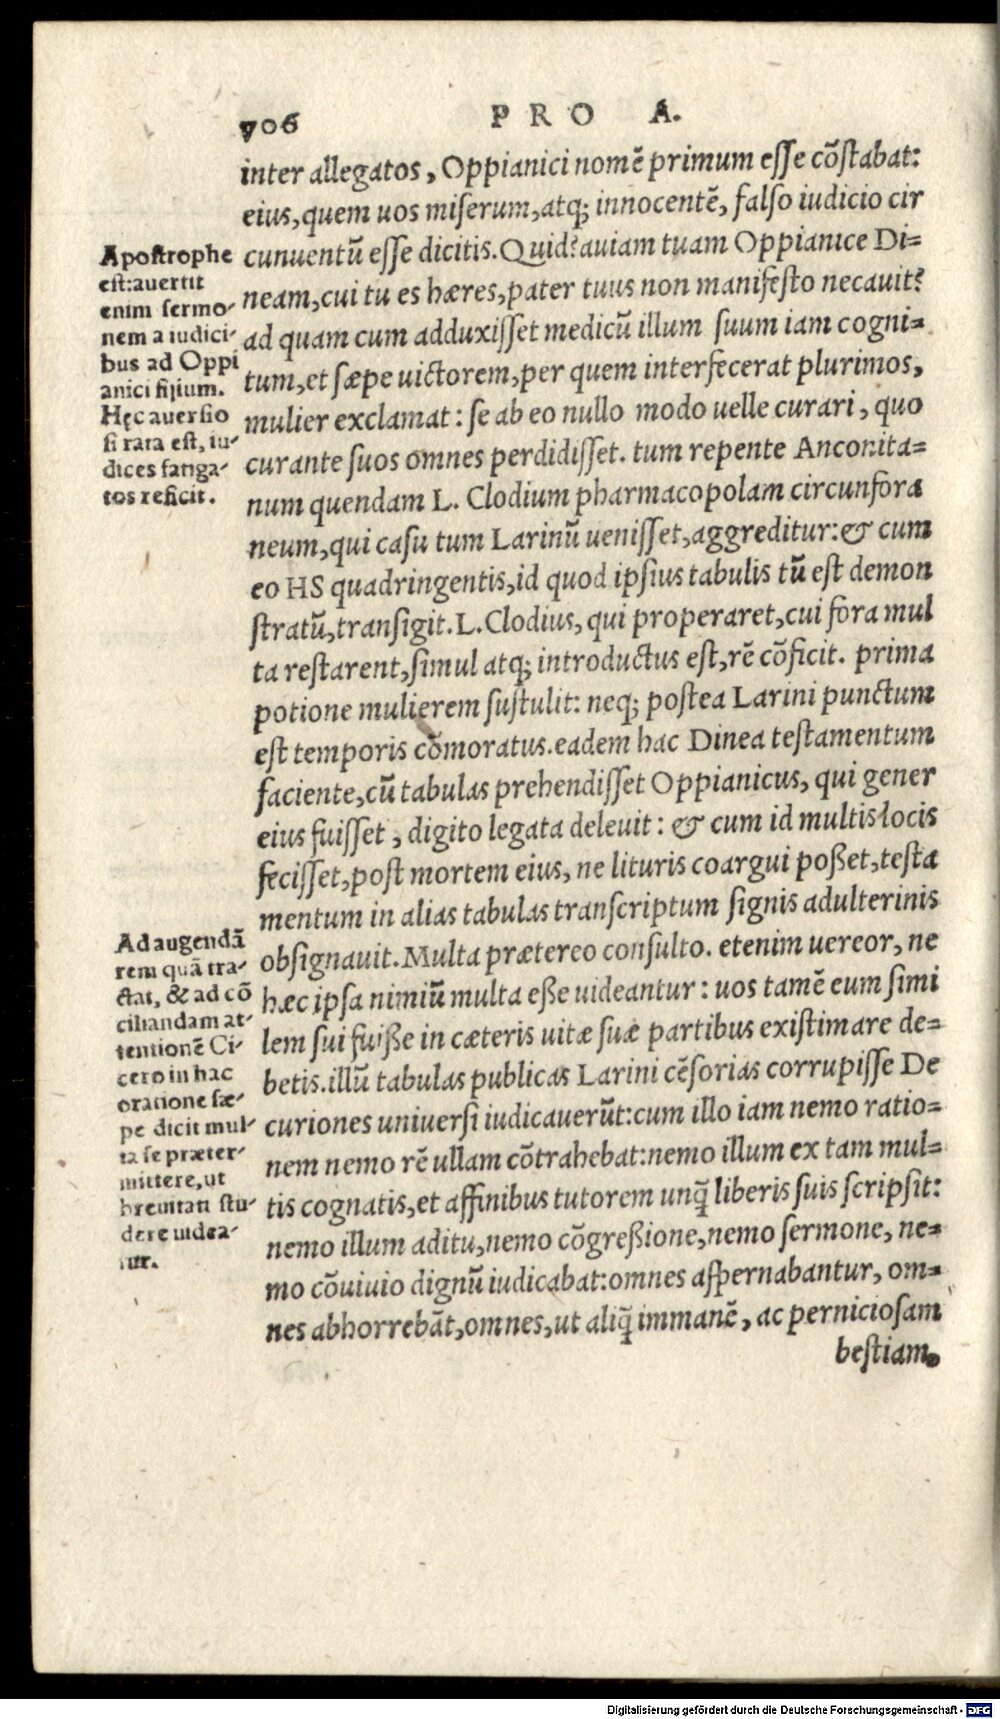 706
PRO A.
inter allegatos, Oppianici nomē primum esse cōstabat:
eius, quem uos miserum, atq; innocentē, falso iudicio cir
cunuentū esse dicitis. Quid? auiam tuam Oppianice Di=
neam, cui tu es hæres, pater tuus non manifesto necauit?
ad quam cum adduxisset medicū illum suum iam cogni=
tum, et sæpe uictorem, per quem interfecerat plurimos,
mulier exclamat: se ab eo nullo modo uelle curari, quo
curante suos omnes perdidisset. tum repente Anconita=
num quendam L. Clodium pharmacopolam circunfora
neum, qui casu tum Larinū uenisset, aggreditur: & cum
eo HS quadringentis, id quod ipsius tabulis tū est demon
stratū, transigit. L. Clodius, qui properaret, cui fora mul
ta restarent, simul atq; introductus est, rē cōficit. prima
potione mulierem sustulit: neq; postea Larini punctum
est temporis cōmoratus. eadem hac Dinea testamentum
faciente, cū tabulas prehendisset Oppianicus, qui gener
eius fuisset, digito legata deleuit: & cum id multis locis
fecisset, post mortem eius, ne lituris coargui poßet, testa
mentum in alias tabulas transcriptum signis adulterinis
obsignauit. Multa prætereo consulto. etenim uereor, ne
hæc ipsa nimiū multa eße uideantur: uos tamē eum simi
lem sui fuiße in cæteris uitæ suæ partibus existimare de=
betis. illū tabulas publicas Larini cēsorias corrupisse De
curiones uniuersi iudicauerūt: cum illo iam nemo ratio=
nem nemo rē ullam cōtrahebat: nemo illum ex tam mul=
tis cognatis, et affinibus tutorem unq̄ liberis suis scripsit:
nemo illum aditu, nemo cōgreßione, nemo sermone, ne=
mo cōuiuio dignū iudicabat: omnes aspernabantur, om=
nes abhorrebāt, omnes, ut aliq̄ immanē, ac perniciosam
bestiam.
Apostrophe
est: auertit
enim sermo-
nem a iudici-
bus ad Oppi
anici filium.
Hęc auersio
si rara est, iu-
dices fatiga-
tos reficit.
Ad augendā
rem quā tra-
ctat, & ad cō
ciliandam at-
tentionē Ci-
cero in hac
oratione sæ-
pe dicit mul-
ta se præter-
mittere, ut
breuitati stu-
dere uidea-
tur.
Digitalisierung gefördert durch die Deutsche Forschungsgemeinschaft - DFG